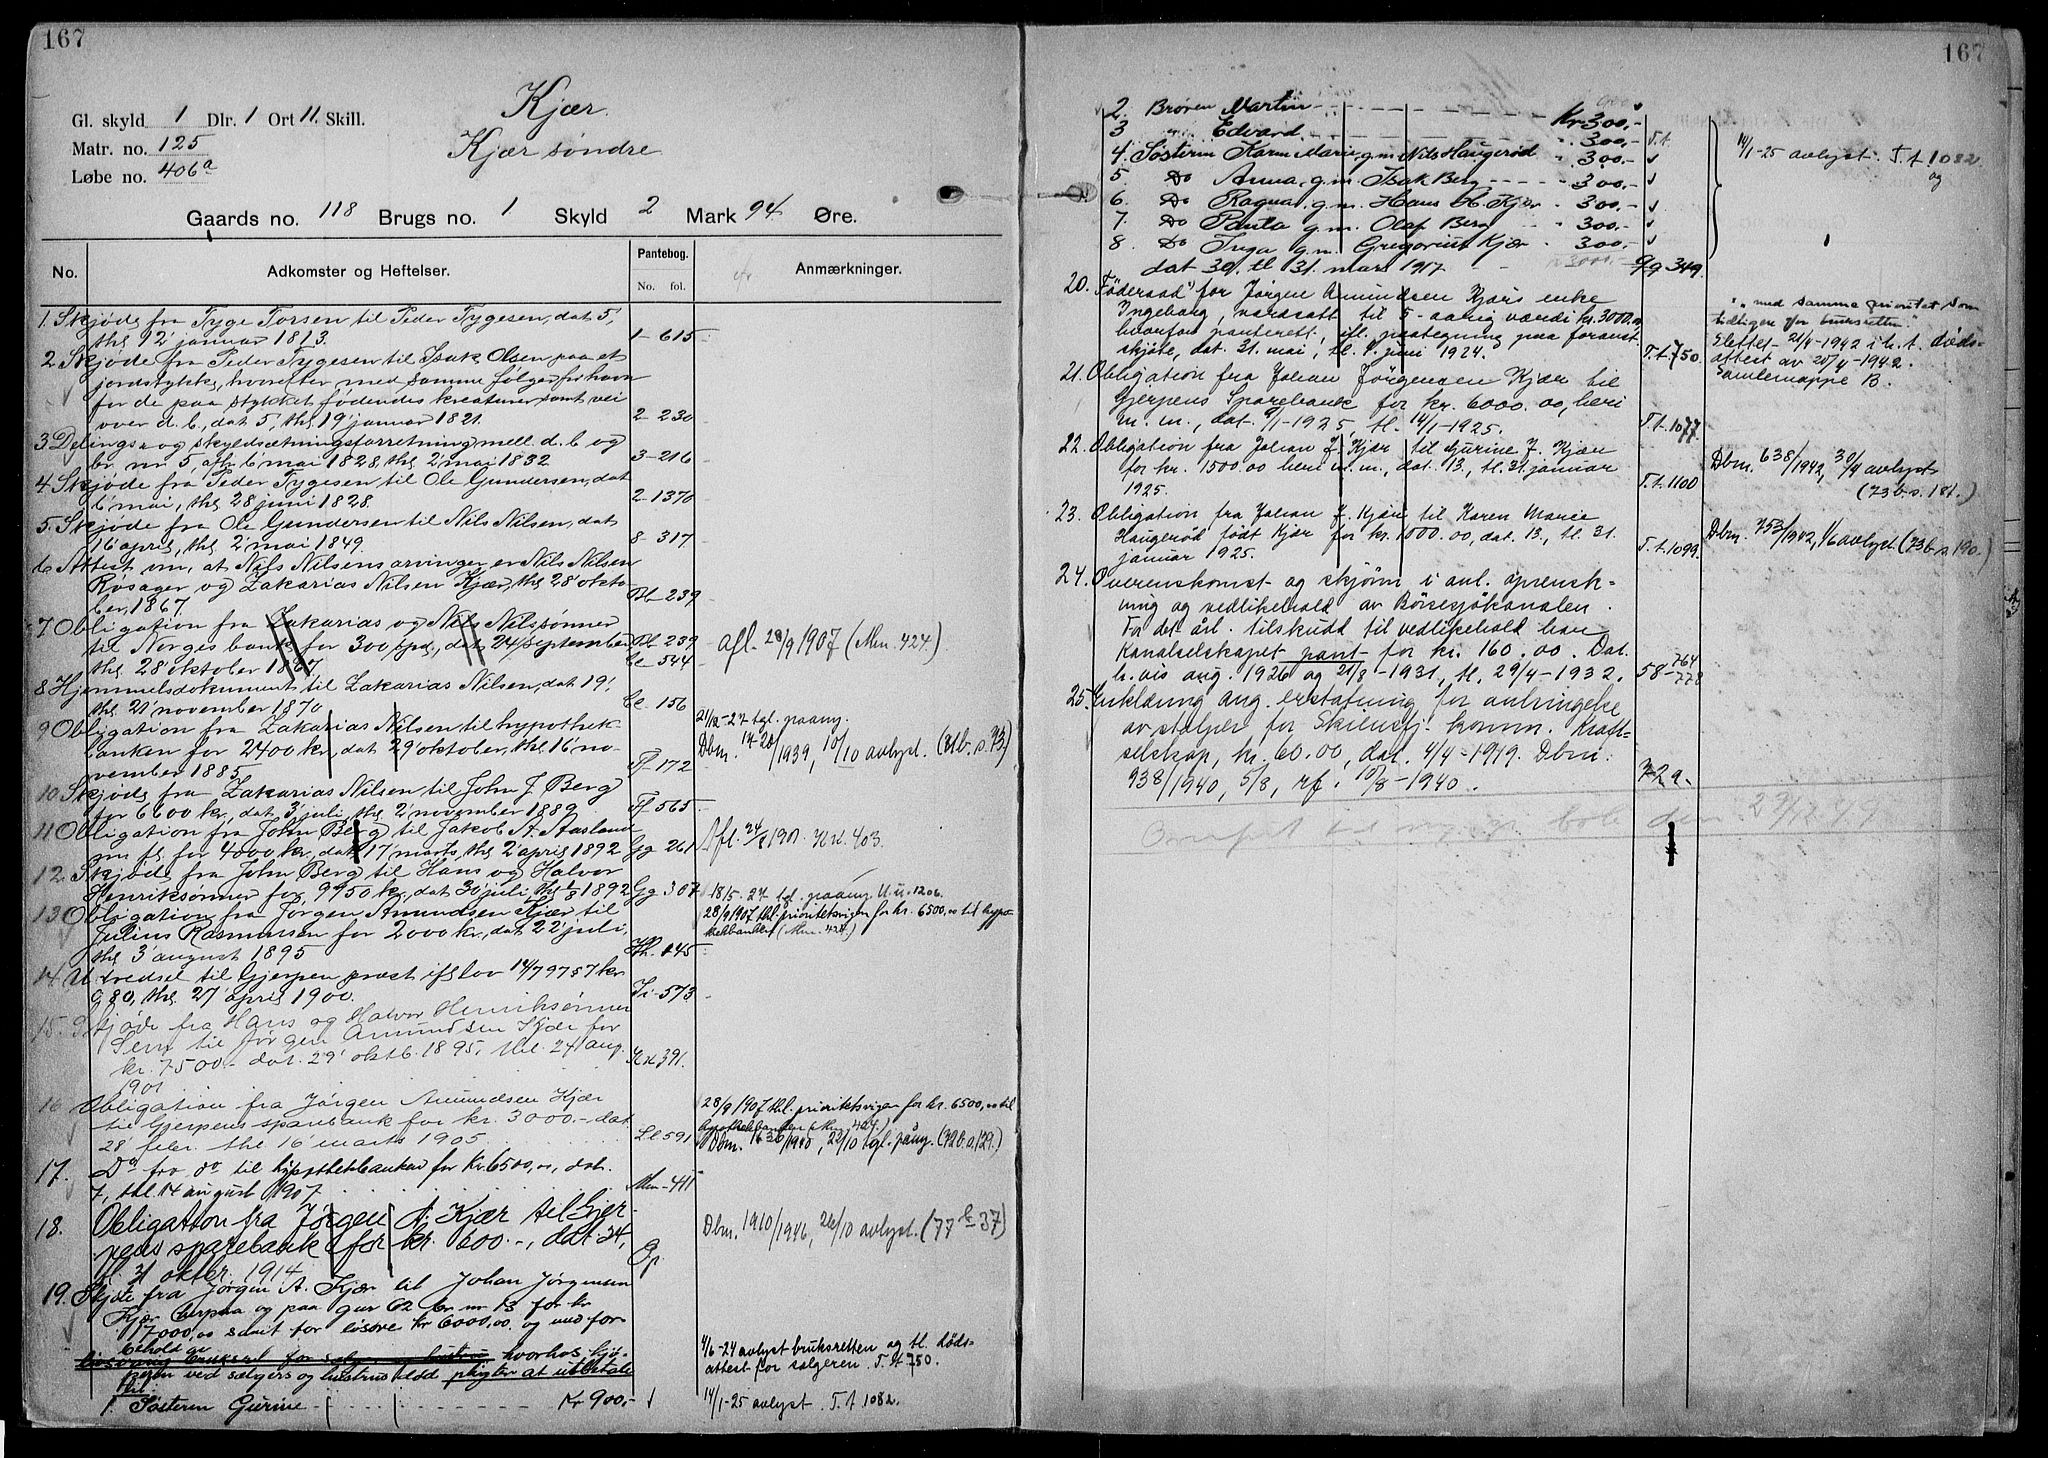 167
Kjær.
Gl. skyld 1 Dlr. 1 Ort 11. Skill.
Kjær søndre
Matr. no. 125
Løbe no. 406a
Gaards no. 118 Brugs no. 1 Skyld 2 Mark 94 Øre.
No. Adkomster og Heftelser. Pantebog. No. fol. Anmærkninger.
1. Skjøde fra Tyge Torsen til Peder Tygesen, dat 5,
thl 12 januar 1813. 1-615
2 Skjøde fra Peder Tygesen til Isak Olsen paa et
jordstykke, hvorefter med samme følger for havn
for de paa stykket fødendes kreaturer samt vei
over d. b., dat 5, thl 19 januar 1821. 2-230
3 Delings- og skyldsætningsforretning mell. d. b og
br. nr 5, afh. 6 mai 1828, thl 2 mai 1832 3-216
4 Skjøde fra Peder Tygesen til Ole Gundersen, dat
6 mai, thl 28 juni 1828. 2-1370
5. Skjøde fra Ole Gundersen til Nils Nilsen, dat
16 april, thl 2 mai 1849. 8-317
6 Attest om, at Nils Nilsens arvinger er Nils Nilsen
Røsager og Zakarias Nilsen Kjær, thl 28 okto-
ber, 1867. Bb-239
7 Obligation fra Zakarias og Nils Nilssønner
til Norges bank for 300 spd, dat 24 september Bb 239
thl 28 oktober 1867 Cc-544 afl. 28/9 1907 (Mm. 424.)
8 Hjemmelsdokument til Zakarias Nilsen, dat 19,
thl 21 november 1870 Cc. 156
9 Obligation fra Zakarias Nilsen til hypothek- 21/12-27 tgl. paany.
banken for 2400 kr, dat 29 oktober, thl 16 no- Dbm. 1420/1939, 10/10 avlyst. (71b. s. 73.)
vember 1885. Ff-172
10 Skjøde fra Zakarias Nilsen til John J. Berg
for 6600 kr, dat 3 juli, thl 2 november 1889 Ff-565
11 Obligation fra John Berg til Jakob A. Aasland
m fl. for 4000 kr, dat 17 marts, thl 2 april 1892 Gg 261 Afl. 24/8 1901 Kk. 403.
12. Skjøde fra John Berg til Hans og Halvor
Henriksønner for 9950 kr, dat 30 juli, thl 1/8 1892 Gg 307 18/5-27 tgl. paany U.u. 1206.
13 Obligation fra Jørgen Amundsen Kjær til 28/9 1907 thl. prioritetsvigen for kr. 6500,00 til hypo-
Julius Rasmussen for 2000 kr, dat 22 juli, thekbanken (Mm. 424.)
thl 3 august 1895 Hh. 145
14. Utredsel til Gjerpen præst ifl lov 14/7 97 57 kr
980, thl 27 april 1900. Ii-573
15. Skjøde fra Hans og Halvor Henriksønner
Sem til Jørgen Amundsen Kjær for
kr. 7500.- dat. 29 oktb. 1895, thl. 24 aug.
1901 Kk 391.
16 Obligation fra Jörgen Amundsen Kjær 28/9 1907 thl. prioritetsvigen for kr. 6500,00 til
til Gjerpens sparebank for kr. 3000.- dat hypothekbanken (Mm. 424.)
28 febr. thl 16 marts 1905. Ll 591 Dbm. 1630/1940, 22/10 tgl. påny. (72 b. s. 129.)
17. Do fra do til hypothekbanken for Kr 6500,00, dat.
7, thl. 14 august 1907. Mm-411
18. Obligation fra Jørgen A. Kjær til Gjer-
pens sparebank for kr. 600.-, dat. 24, Dbm. 1910/1946, 26/10 avlyst. (77 b 37)
tl. 31 oktbr. 1914. Qq
19. Skjøte fra Jørgen A. Kjær til Johan Jörgensen
Kjær herpaa og paa gnr 62 br. nr 13 for kr
17000,00 samt for løsøre kr 6000,00. og med for-
behold av
hvorhos kjö- 4/6-24 avlyst bruksretten og tl. döds-
peren ved sælgers og hustrus död pligter at utbetale attest for sælgeren. T. t 750.
til:
1. Søsteren Gurine Kr 900.- 14/1-25 avlyst. T. t 1082.
167
2. Broren Martin Kr 300.-
3 Edvard 300.- T. t.
4. Søsteren Karen Marie, g. m. Nils Haugerød 300.- 14/1-25 avlyst. T. t 1082
5. Do Anna, g. m. Isak Berg 300.- og
6. Do Ragna, g. m. Hans H. Kjær 300.-
7 Do Paula g. m. Olaf Berg 300.-
8. Do Inga g. m. Gregorius Kjær 300.-
dat 30. tl 31. mars 1917 Qq 349.
20. "Föderaad" for Jörgen Amundsen Kjærs enke
Ingeborg, værdsatt til 5-aarig værdi kr. 3000.00 "med samme prioritet som
hvorfor panterett, ifl. paategning paa foranst. tidligere for bruksretten."
skjöte, dat. 31. mai, tl. 4. juni 1924. T. t. 750 Slettet 21/4-1942 i h. t. döds-
attest av 20/4-1942.
Samlemappe B.
21. Obligation fra Johan Jörgensen Kjær til
Gjerpens Sparebank for kr. 6000.00, heri
m. m., dat. 9/1-1925, tl. 14/1-1925. T. t. 1077
22. Obligation fra Johan J. Kjær til Gurine J. Kjær
for kr. 1500.00 heri m. m., dat. 13., tl. 31. januar Dbm. 638/1942, 30/4 avlyst
1925. T. t. 1100 (73 b s. 181.)
23. Obligation fra Johan J. Kjær til Karen Marie
Haugeröd född Kjær for kr. 1000.00, dat. 13., tl. 31. Dbm. 753/1942, 1/6 avlyst (73 b s 190.)
januar 1925. T. t. 1099.
24. Overenskomst og skjönn i anl. oprensk-
ning og vedlikehold av Börsesjökanalen.
For det årl. tilskudd til vedlikehold har
Kanalselskapet pant for kr. 160.00. Dat.
h. vis aug. 1926 og 21/8-1931, tl. 29/4-1932. 58-764/778
25. Erklæring ang. erstatning for anbringelse
av stolper for Skiensfj. komm. Kraft-
selskap, kr. 60.00, dat. 4/4-1919. Dbm.
938/1940, 5/8, rf. 10/8-1940. 72 a.